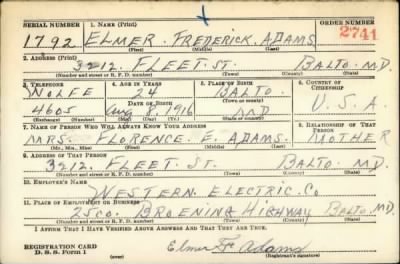 SERIAL NUMBER 1. NAME (Print) ORDER NUMBER
1792 ELMER FREDERICK ADAMS 2741
(First) (Middle) (Last)
2. ADDRESS (Print)
3212 FLEET ST. BALTO MD.
(Number and street or R. F. D. number) (Town) (County) (State)
3. TELEPHONE 4. AGE IN YEARS 5. PLACE OF BIRTH 6. COUNTRY OF CITIZENSHIP
WOLFE 24 BALTO.
DATE OF BIRTH (Town or county)
4605 Aug 8, 1916 MD U.S.A.
(Mo.) (Day) (Yr.) (State or country)
7. NAME OF PERSON WHO WILL ALWAYS KNOW YOUR ADDRESS 8. RELATIONSHIP OF THAT PERSON
MRS. FLORENCE E. ADAMS. MOTHER
(Mr., Mrs., Miss) (First) (Middle) (Last)
9. ADDRESS OF THAT PERSON
3212 FLEET ST. BALTO. MD.
(Number and street or R. F. D. number) (Town) (County) (State)
10. EMPLOYER'S NAME
WESTERN ELECTRIC. CO
11. PLACE OF EMPLOYMENT OR BUSINESS
2500 BROENING HIGHWAY BALTO. MD.
(Number and street or R. F. D. number) (Town) (County) (State)
I AFFIRM THAT I HAVE VERIFIED ABOVE ANSWERS AND THAT THEY ARE TRUE.
REGISTRATION CARD
D. S. S. Form 1 Elmer F. Adams